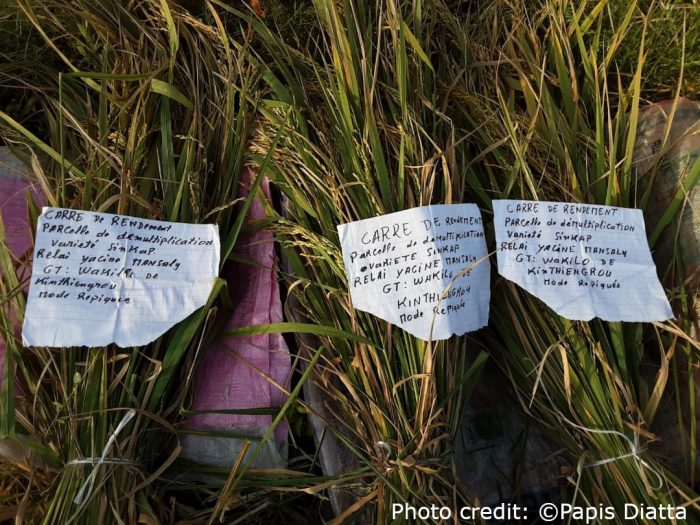 CARRE DE RENDEMENT
Parcelle de démultiplication
varieté SinKap
Relai yacine Mansaly
GT: Wakilo de
Kinthiengrou
Mode Repiqué
CARRE DE RENDEMENT
Parcelle de démultiplication
varieTE SINKAP
RELAI YACINE Mansaly
GT: WAKILO DE
KINTHIENGROU
Mode Repiqué
CARRE DE RENDEMENT
Parcelle de démultiplication
varieté SINKAP
RELAI YACINE MANSALY
GT: WAKILO DE
KINTHIENGROU
Mode Repiqué
Photo credit: ©Papis Diatta